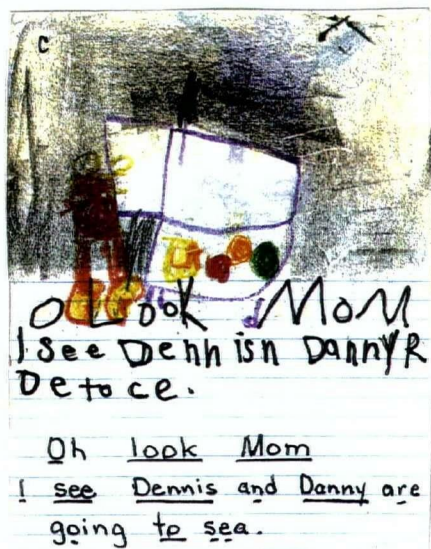 C
O Look MoM
I see Dennisn DannyR
De to ce.
Oh look Mom
I see Dennis and Danny are
going to sea.